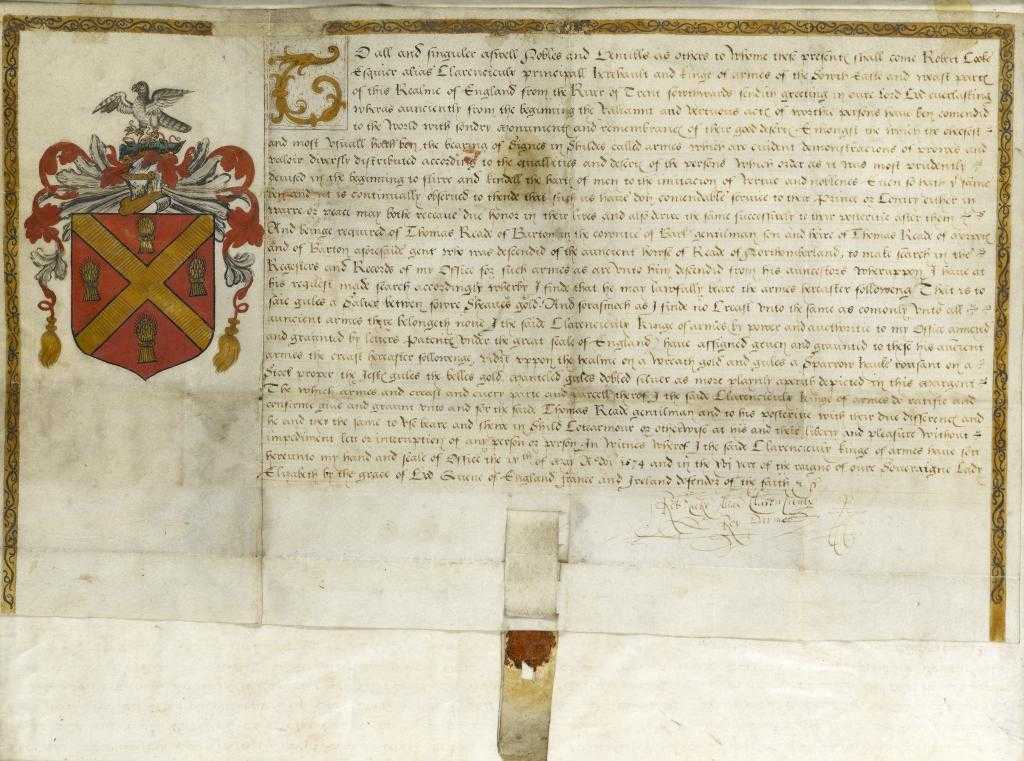 To all and singuler aswell Nobles and Gentills as others to whome these presents shall come Robert Cooke
Esquier alias Clarencieulx principall Herehault and kinge of armes of the Sowth Easte and weast partes
of this Realme of England from the River of Trent sowthwardes sendith greeting in oure Lord God everlasting
wheras aunciently from the beginning the valiaunt and vertuous actes of worthie persons have ben comendid
to the world with sondry monumentes and remembrances of their good desertes Emongst the which the chiefest
and most usuall hath ben the bearing of Signes in Shildes called armes which are evident demonstracions of prowes and
valoir diversly distributed according to the quallities and desertes of the persons which order as it was most prudently
devised in the beginning to stirre and kindell the hartes of men to the imitacion of vertue and noblenes Even so hath the same
ben and yet is continually observed to thende that such as have don comendable service to their Prince or Contry either in
warre or peace may both receave due honor in their lives and also derive the same successively to their posteritie after them
And beinge required of Thomas Reade of Barton in the cowntie of Berk gentleman son and heire of Thomas Reade of
and of Barton aforesaide gent who was descended of the auncient howse of Reade of Northomberland, to make search in the
Registers and Records of my Office for such armes as are unto him descendid from his auncestors Wherappon I have at
his request made search accordingly wherby I finde that he may lawfully beare the armes hereafter followeng That is to
saie gules a Saltier betwen fowre Sheaves gold And forasmuch as I finde no Creast unto the same as comonly unto all
auncient armes there belongeth none I the saide Clarencieulx Kinge of armes by power and authoritie to my Office annexed
and graunted by letters Patentes under the great seale of England have assigned geven and graunted to these his auncient
armes the creast hereafter followenge, videlt uppon the healme on a wreath gold and gules a Sparrow hauke voisant on a
Stock proper the Jestes gules the belles gold mantelled gules dobled silver as more plainly aperith depicted in this margent
The which armes and creast and every parte and parcell therof I the saide Clarencieulx Kinge of armes do ratifie and
confirme give and graunt unto and for the saide Thomas Reade gentilman and to his posteritie with their due differences and
he and they the same to use beare and shewe in Shild Cotearmour or otherwise at his and their libertie and pleasure without
impediment lett or interuption of any person or persons In witnes wherof I the saide Clarencieulx kinge of armes have sett
hereunto my hand and seale of Office the of May A° Doi 1574 and in the xvj yere of the raigne of oure Soveraigne Lady
Elizabeth by the grace of God Queene of England France and Ireland defendor of the faith &c
Rob Cooke Alias Clarencieulx
Roy Darmes